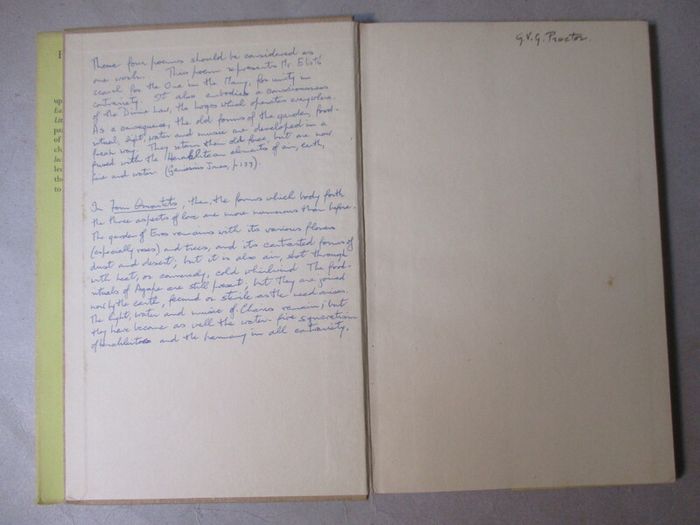 These four poems should be considered as
one work. This poem represents Mr Eliot's
search for the One in the Many, for unity in
contrariety. It also embodies a consciousness
of the Divine Law, the Logos which operates everywhere.
As a consequence, the old forms of the garden, food-
ritual, light, water and music are developed in a
fresh way. They retain their old force, but are now
fused with the Heraklitean elements of air, earth,
fire and water (Genesius Jones, p.133).
In Four Quartets, then, the forms which body forth
the three aspects of love are more numerous than before.
The garden of Eros remains with its various flowers
(especially roses) and trees, and its contrasted forms of
dust and desert; but it is also air, shot through
with heat, or conversely, cold whirlwind. The food-
rituals of Agape are still present; but they are joined
now by the earth, fecund or sterile as the need arises.
The light, water and music of Charis remain; but
they have become as well the water-fire syncretism
of Heraklitos and the harmony in all contrariety.
G.V.G. Proctor.
up
pa
of
ch
le
the
to